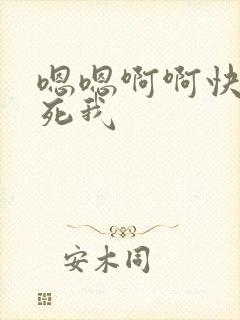 嗯嗯啊啊快
死我
安木同